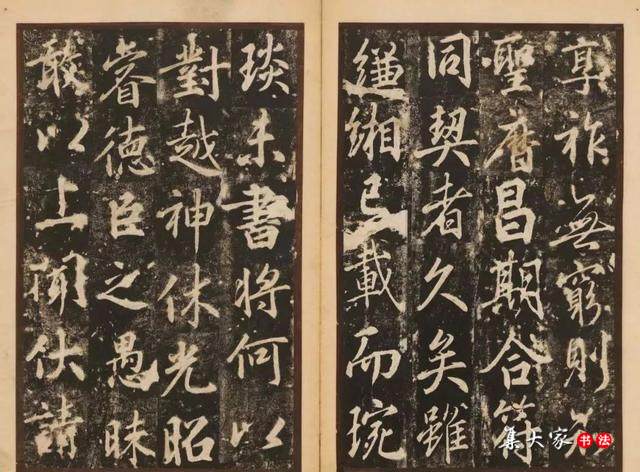 享祚無窮則知
聖曆昌期合符
同契者久矣雖
縑緗已載而琬
琰未書將何以
對越神休光昭
睿德臣之愚昧
敢以上聞伏請
集大家 书法